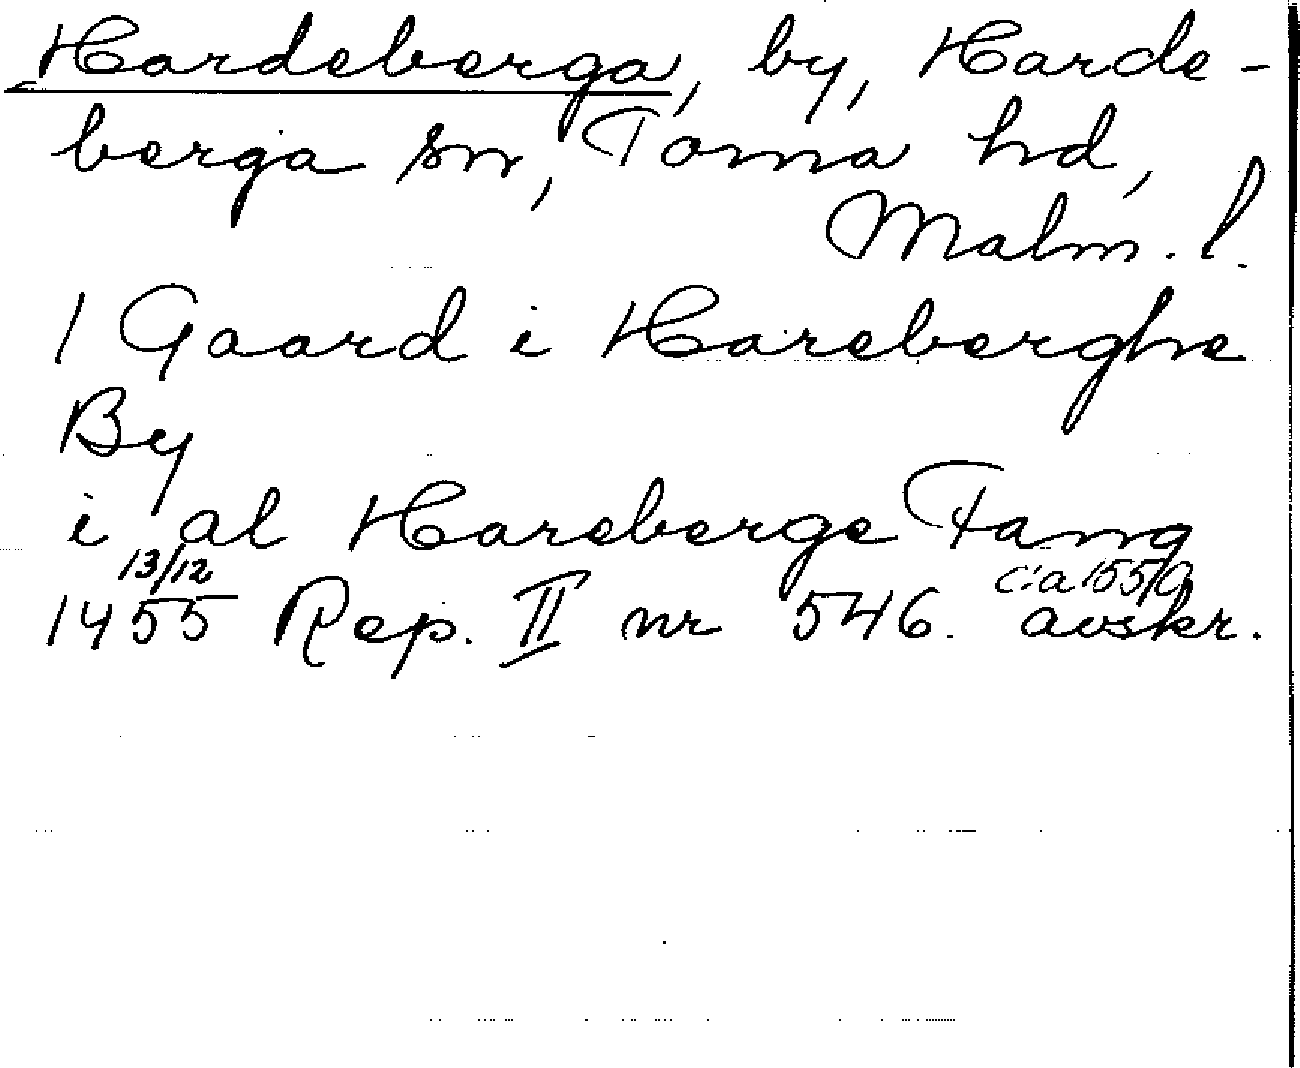 Hardeberga, by, Harde-
berga sn, Torna hd,
Malm. l.
1 Gaard i Hareberghe
By
i al Hareberge Fang
13/12 c:a 1550
1455 Rep. II nr 546. avskr.